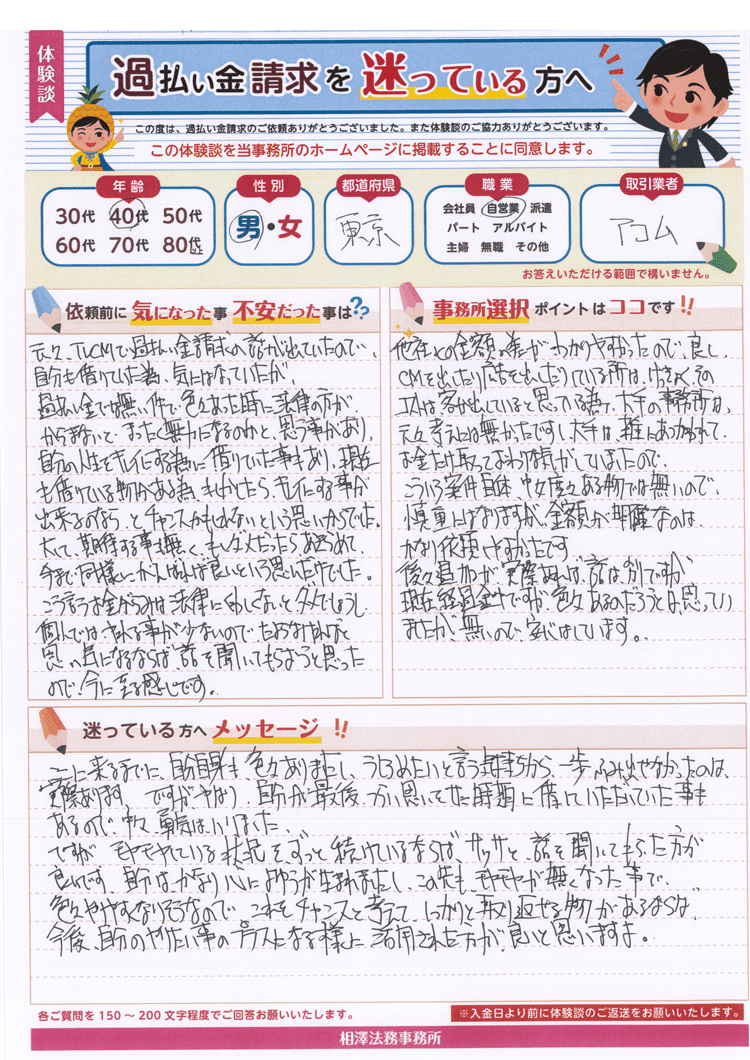 体験談
過払い金請求を迷っている方へ
この度は、過払い金請求のご依頼ありがとうございました。また体験談のご協力ありがとうございます。
この体験談を当事務所のホームページに掲載することに同意します。
年齢
30代 40代 50代
60代 70代 80代以上
性別
男・女
都道府県
東京
職業
会社員 自営業 派遣
パート アルバイト
主婦 無職 その他
取引業者
アコム
お答えいただける範囲で構いません。
依頼前に気になった事 不安だった事は??
元々、TVCMで過払い金請求の話が出ていたので、
自分も借りていた為、気にはなっていたが、
過払い金では無い件で色々あった時に法律の方が
からまないと、まったく無力になるのかと、思う事があり、
自分の人生をキレイにする為に借りていた事もあり、現在
も借りている物がある為、もしかしたら、キレイにする事が
出来るのなら、とチャンスかもしれないという思いからでした。
大して、期待する事も無く、もしダメだったらあきらめて、
今まで同様にがんばれば良いという思いだけでした。
こう言うお金がらみは法律にくわしくないとダメでしょうし、
個人ではやれる事が少ないので、たよらなければと
思い気になるならば、話を聞いてもらおうと思った
ので、今に至る感じです。
事務所選択ポイントはココです!!
他社との金額の差がわかりやすかったので、良し、
CMを出したり広告を出したりしている所は、けっきょくその
コストは客が出していると思っている為、大手の事務所は、
元々考えには無かったですし、大手は、雑にあつかわれて、
お金だけ取っておわりな気がしていましたので、
こういう案件自体、中々度々ある物では無いので、
慎重にはなりますが、金額が明確なのは、
かなり依頼しやすかったです
後々追加が実際あれば、話は別ですが
現在経過途中ですが、色々あるのだろうとは思ってい
ましたが、無いので、安心はしています。
迷っている方へ メッセージ!!
ここに来るまでに、自分自身も、色々ありましたし、うしろめたいと言う気持ちから、一歩ふみ出せなかったのは、
実際あります。ですがやはり、自分が最後つらい思いでせた時期に借していただいていた事も
あるので、中々、勇気はいりました、
ですが、モヤモヤしている状況をずっと続けているならば、サッサと、話を聞いてもらった方が
良いです、自分は、かなり心によゆうが生まれましたし、この先も、モヤモヤが無くなった事で、
色々やりやすくなりそうなので、これをチャンスと考えて、しっかりと取り返せる物があるならば、
今後、自分のやりたい事のプラスになる様に活用された方が良いと思いますよ。
各ご質問を150～200文字程度でご回答お願いいたします。
※入金日より前に体験談のご返送をお願いいたします。
相澤法務事務所